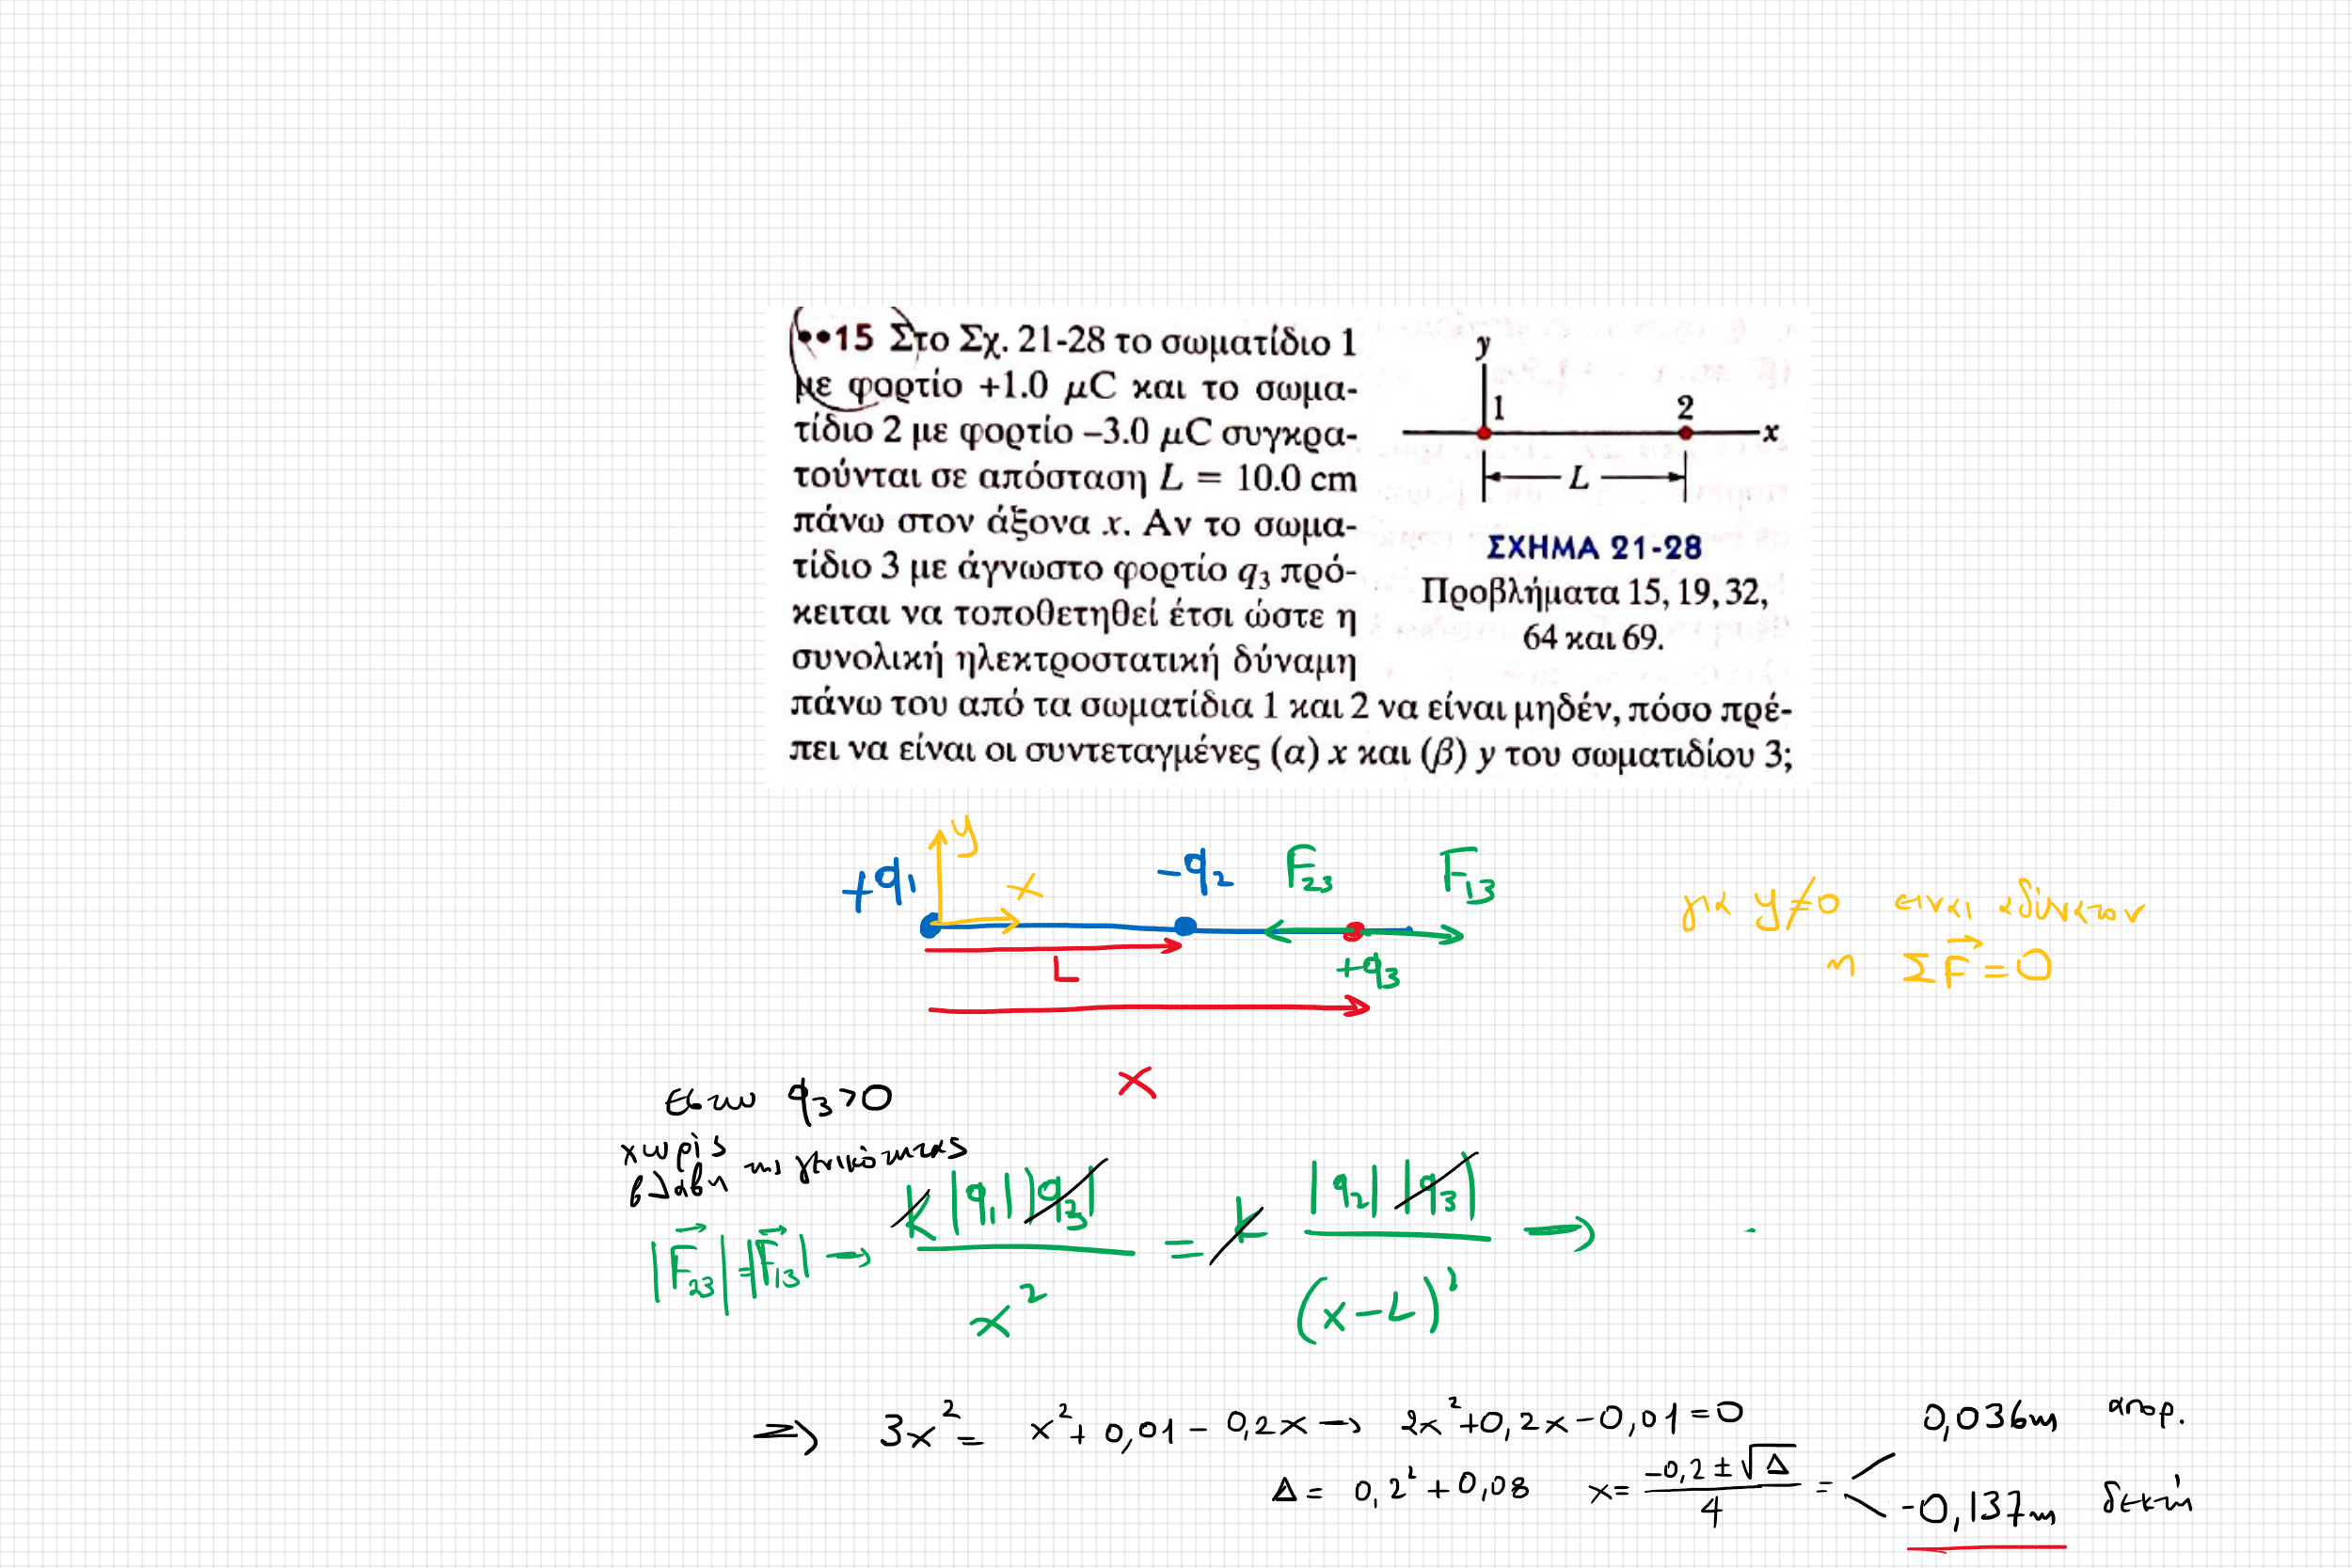 ••15 Στο Σχ. 21-28 το σωματίδιο 1
με φορτίο +1.0 μC και το σωμα-
τίδιο 2 με φορτίο –3.0 μC συγκρα-
τούνται σε απόσταση L = 10.0 cm
πάνω στον άξονα x. Αν το σωμα-
τίδιο 3 με άγνωστο φορτίο q₃ πρό-
κειται να τοποθετηθεί έτσι ώστε η
συνολική ηλεκτροστατική δύναμη
πάνω του από τα σωματίδια 1 και 2 να είναι μηδέν, πόσο πρέ-
πει να είναι οι συντεταγμένες (α) x και (β) y του σωματιδίου 3;
y
1 2
x
L
ΣΧΗΜΑ 21-28
Προβλήματα 15, 19, 32,
64 και 69.
+q₁ y x -q₂ F₂₃ F₁₃
L +q₃
x
για y≠0 ειναι αδύνατον
η ΣF⃗ = 0
εστω q₃>0
χωρίς
βλάβη της γενικότητας
|F⃗₂₃| = |F⃗₁₃| → k|q₁||q₃| / x² = k |q₂||q₃| / (x-L)² →
⇒ 3x² = x² + 0,01 - 0,2x → 2x² + 0,2x - 0,01 = 0
Δ = 0,2² + 0,08 x = (-0,2 ± √Δ) / 4 =
0,036m απορ.
-0,137m δεκτή